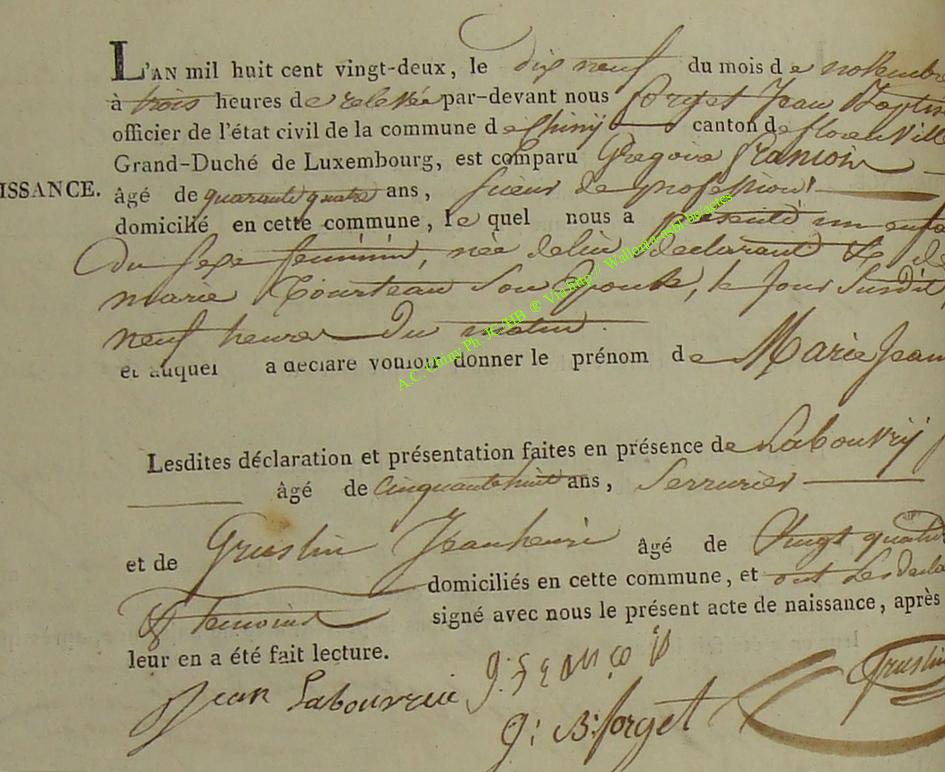 L'AN mil huit cent vingt-deux, le dix neuf du mois de novembre
à trois heures de relevée par-devant nous forget Jean Baptis
officier de l'état civil de la commune de Chiny canton de florenville
Grand-Duché de Luxembourg, est comparu Gregoire francois
ISSANCE. âgé de quarante quatre ans, sieur de profession
domicilié en cette commune, le quel nous a présenté un enfa
du sexe feminin, née de lui declarant & de
marie Tourteau son Epouse, le jour susdit
neuf heures du matin.
et auquel a déclaré vouloir donner le prénom de Marie Jean
Lesdites déclaration et présentation faites en présence de Labouvrij
âgé de cinquante huit ans, serrurier
et de Gruslin Jean henri âgé de Vingt quatre
domiciliés en cette commune, et ont les decla
& temoins signé avec nous le présent acte de naissance, après
leur en a été fait lecture.
Jean Labouvrie g: franço is
J: B: forget Gruslin
A.C. Chiny Ph. JC. HB ® Via http://